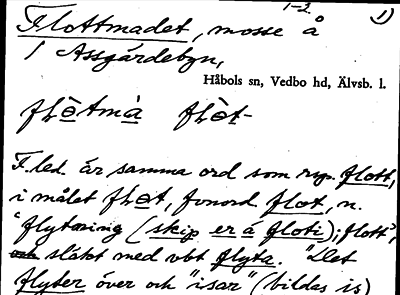 1-2. 1)
Flottmadet, mosse å
/ Assgärdebyn,
Håbols sn, Vedbo hd, Älvsb. l.
F. led. är samma ord som nsv. flott,
i målet fonord. flot, n.
"flytning (skip er á floti); flott",
släkt med vbt flyta. "Det
flyter över och "isar" (bildas is)